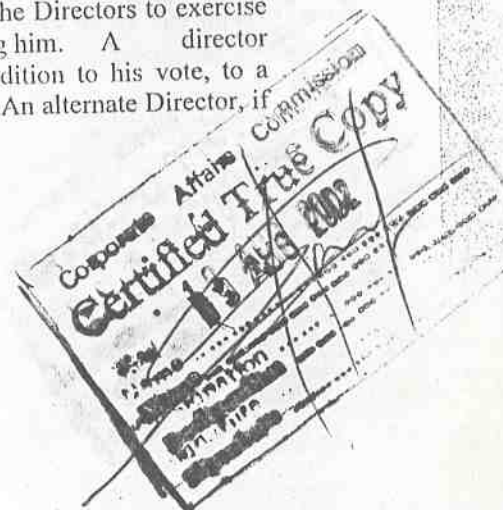 he Directors to exercise
g him. A director
dition to his vote, to a
An alternate Director, if
Corporate Affairs Commission
Certified True Copy
13 AUG 2002
Name
Signature